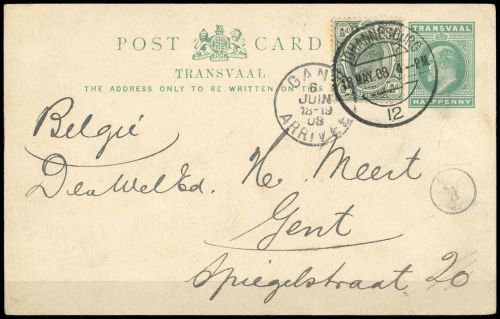 POST CARD
TRANSVAAL
THE ADDRESS ONLY TO BE WRITTEN ON THIS
JOHANNESBURG
18 MAY.08 4-PM
12
TRANSVAAL
HALFPENNY
GAND
6
JUIN
18-19
08
ARRIVEE
België
Den WelEd. H. Meert
Gent
Spiegelstraat 20